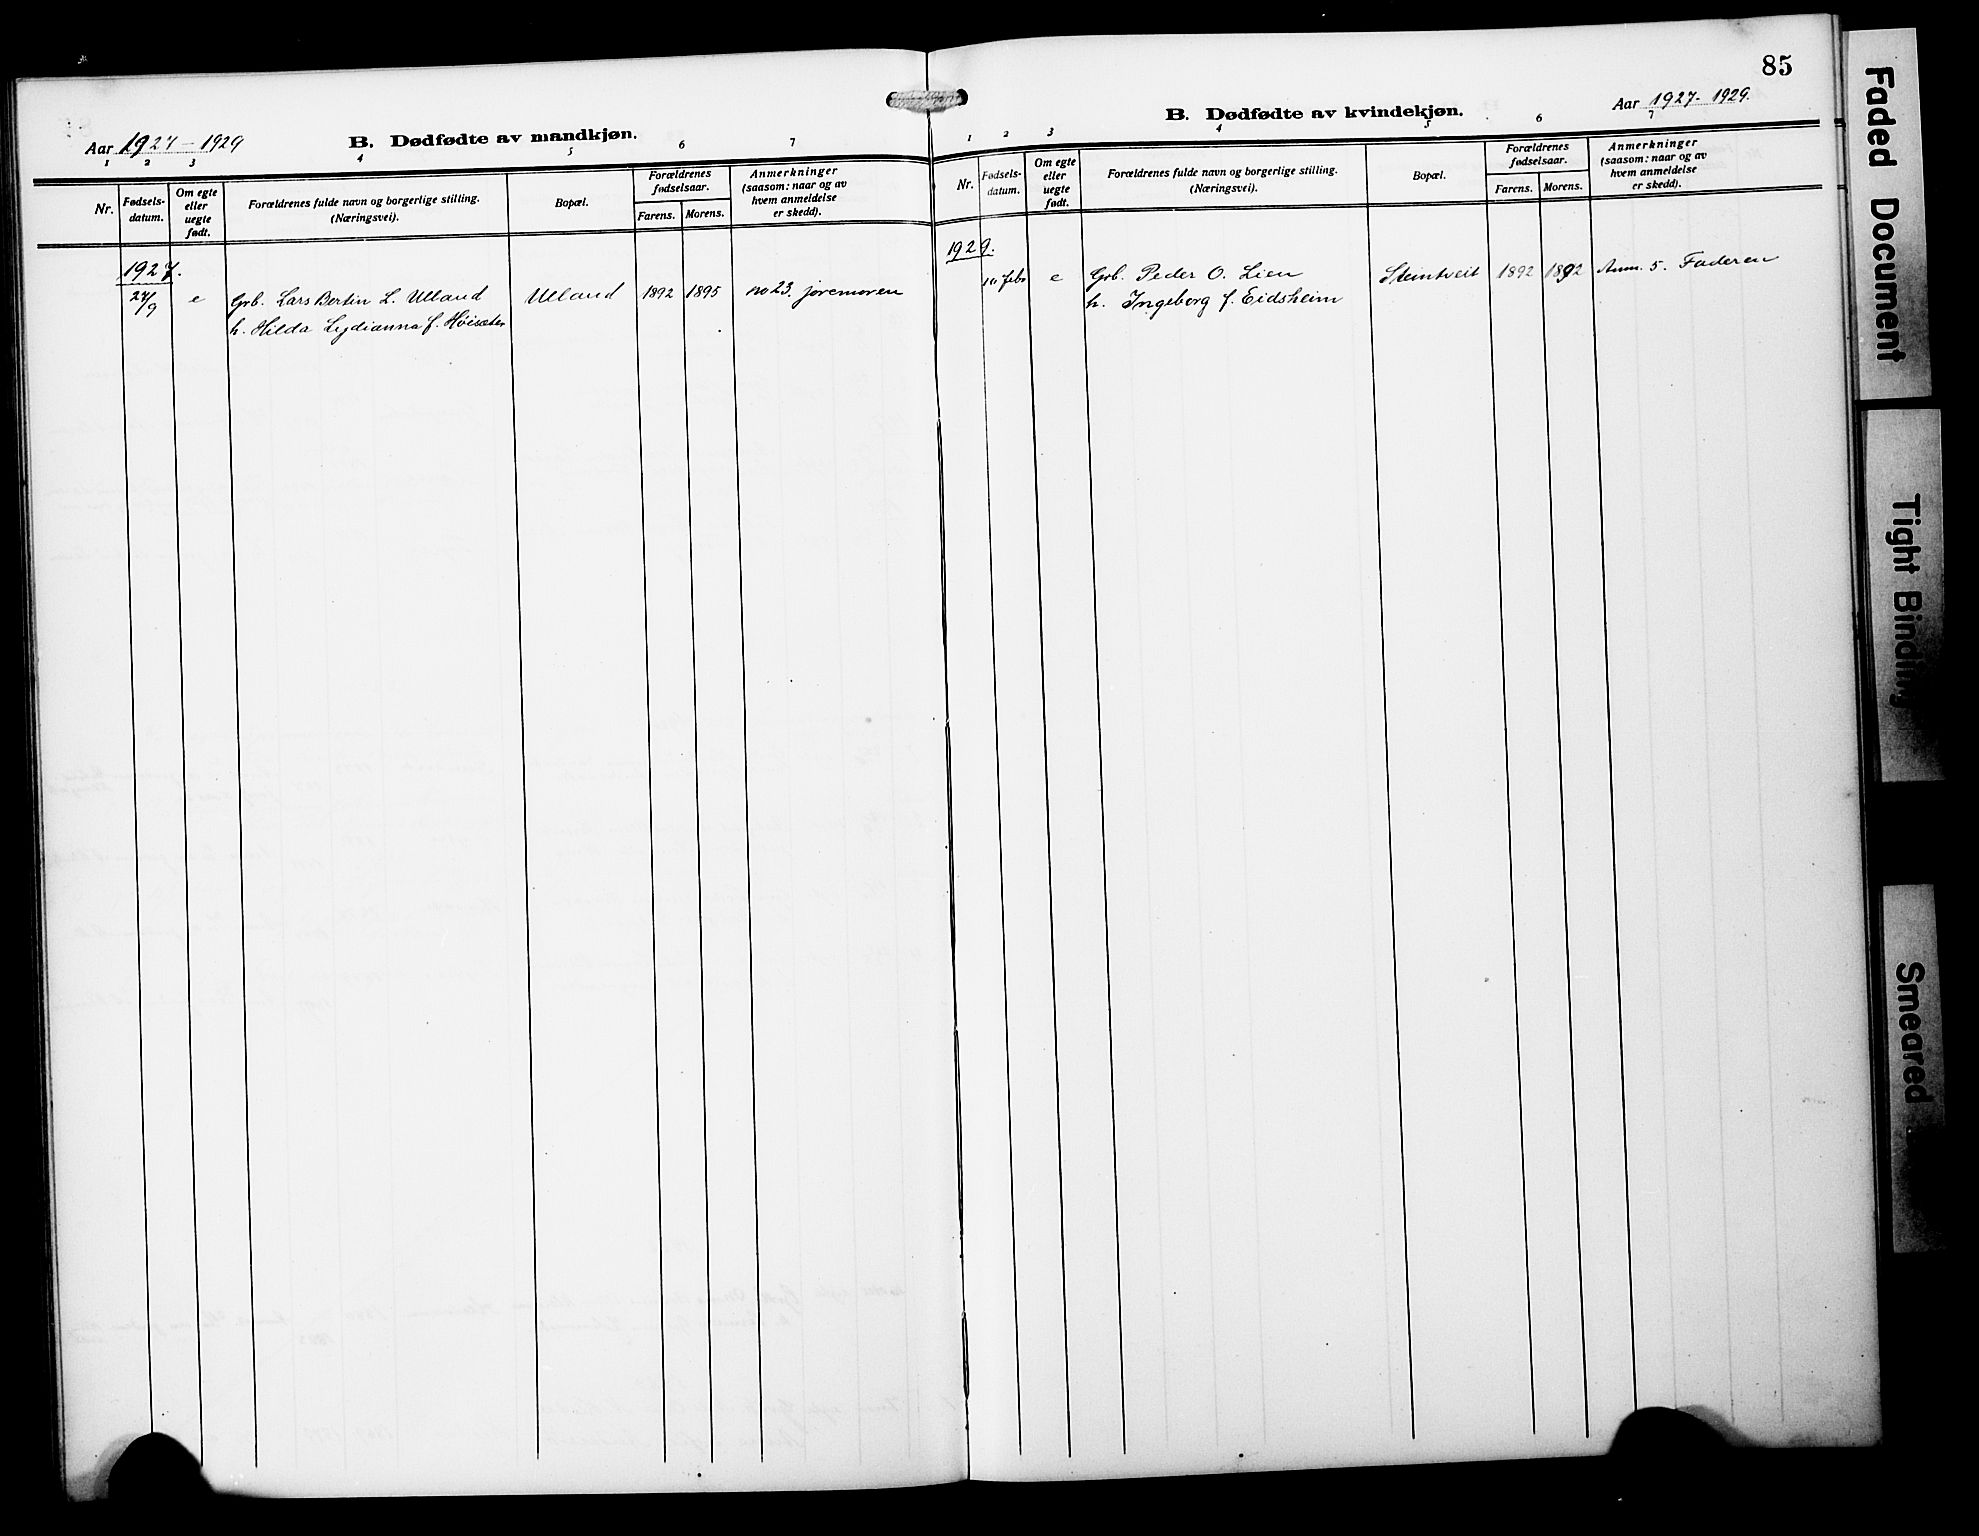 Aar 1927 - 1929
B. Dødfødte av mandkjøn.
1 2 3 4 5 6 7
Nr.
Fødsels-
datum.
Om egte
eller
uegte
født.
Forældrenes fulde navn og borgerlige stilling.
(Næringsvei).
Bopæl.
Forældrenes
fødselsaar.
Farens. Morens.
Anmerkninger
(saasom: naar og av
hvem anmeldelse
er skedd).
1927.
27/9 e Grb. Lars Bertin L. Ulland Ulland 1892 1895 no 23. joremoren
h. Hilda Lydianna f. Høisæter
85
B. Dødfødte av kvindekjøn.
Aar 1927- 1929.
1 2 3 4 5 6 7
Nr.
Fødsels-
datum.
Om egte
eller
uegte
født.
Forældrenes fulde navn og borgerlige stilling.
(Næringsvei).
Bopæl.
Forældrenes
fødselsaar.
Farens. Morens.
Anmerkninger
(saasom: naar og av
hvem anmeldelse
er skedd).
1929.
10 febr e Grb. Peder O. Lien Steintveit 1892 1892 Anm. 5. Faderen
h. Ingeborg f. Eidsheim
Faded Document
Tight Binding
Smeared